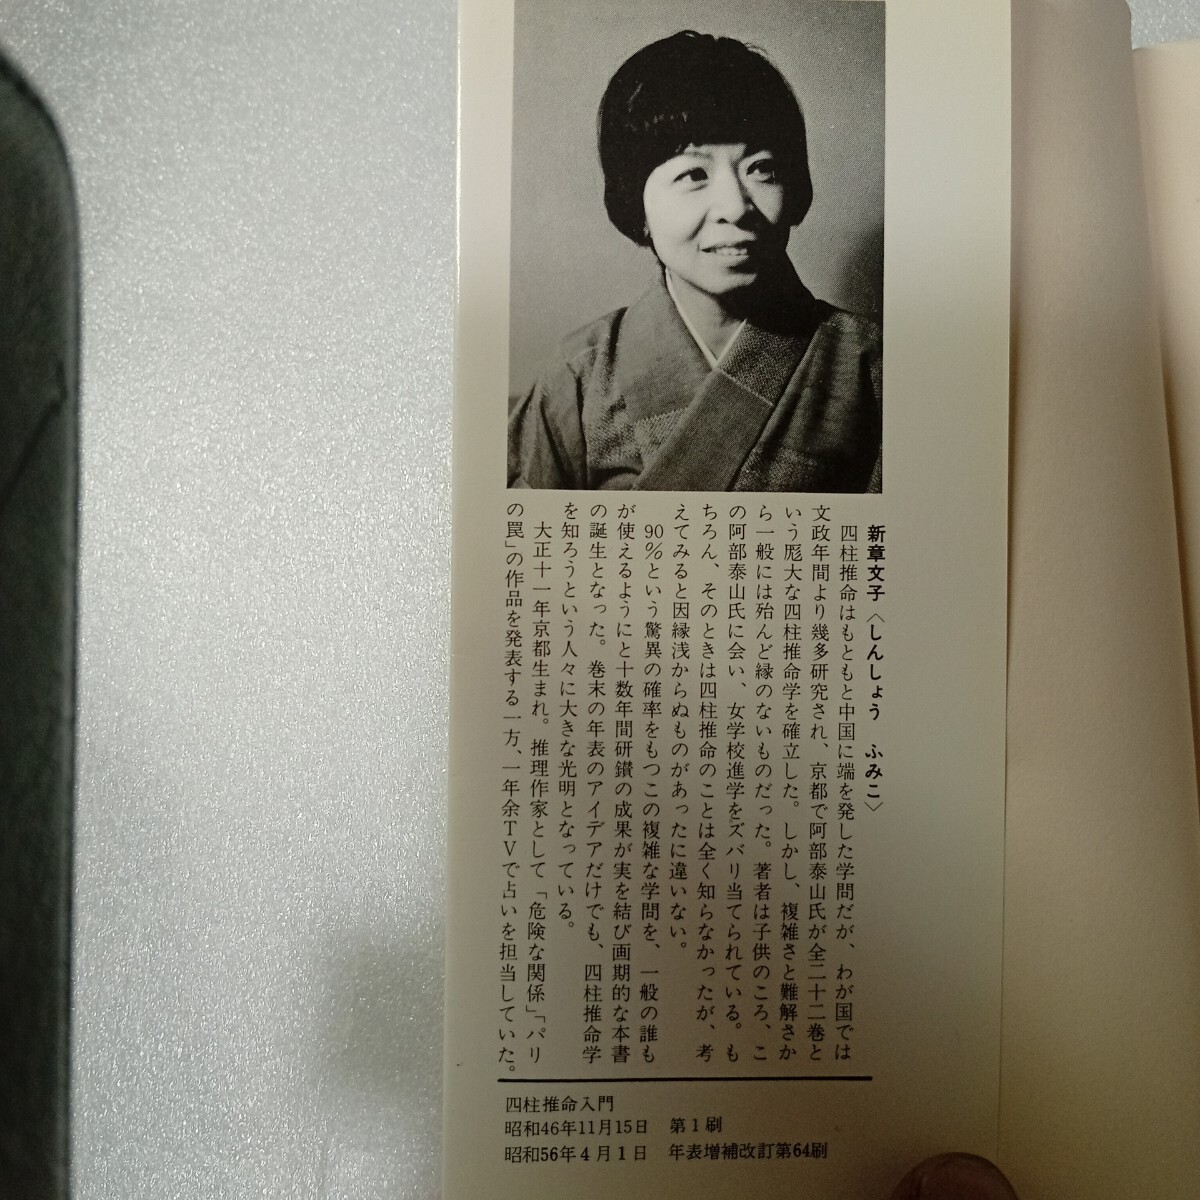 新章文子〈しんしょう　ふみこ〉
四柱推命はもともと中国に端を発した学問だが、わが国では
文政年間より幾多研究され、京都で阿部泰山氏が全二十二巻と
いう厖大な四柱推命学を確立した。しかし、複雑さと難解さか
ら一般には殆んど縁のないものだった。著者は子供のころ、こ
の阿部泰山氏に会い、女学校進学をズバリ当てられている。も
ちろん、そのときは四柱推命のことは全く知らなかったが、考
えてみると因縁浅からぬものがあったに違いない。
90％という驚異の確率をもつこの複雑な学問を、一般の誰も
が使えるようにと十数年間研鑚の成果が実を結び画期的な本書
の誕生となった。巻末の年表のアイデアだけでも、四柱推命学
を知ろうという人々に大きな光明となっている。
大正十一年京都生まれ。推理作家として「危険な関係」「パリ
の罠」の作品を発表する一方、一年余TVで占いを担当していた。
四柱推命入門
昭和46年11月15日　第1刷
昭和56年4月1日　年表増補改訂第64刷